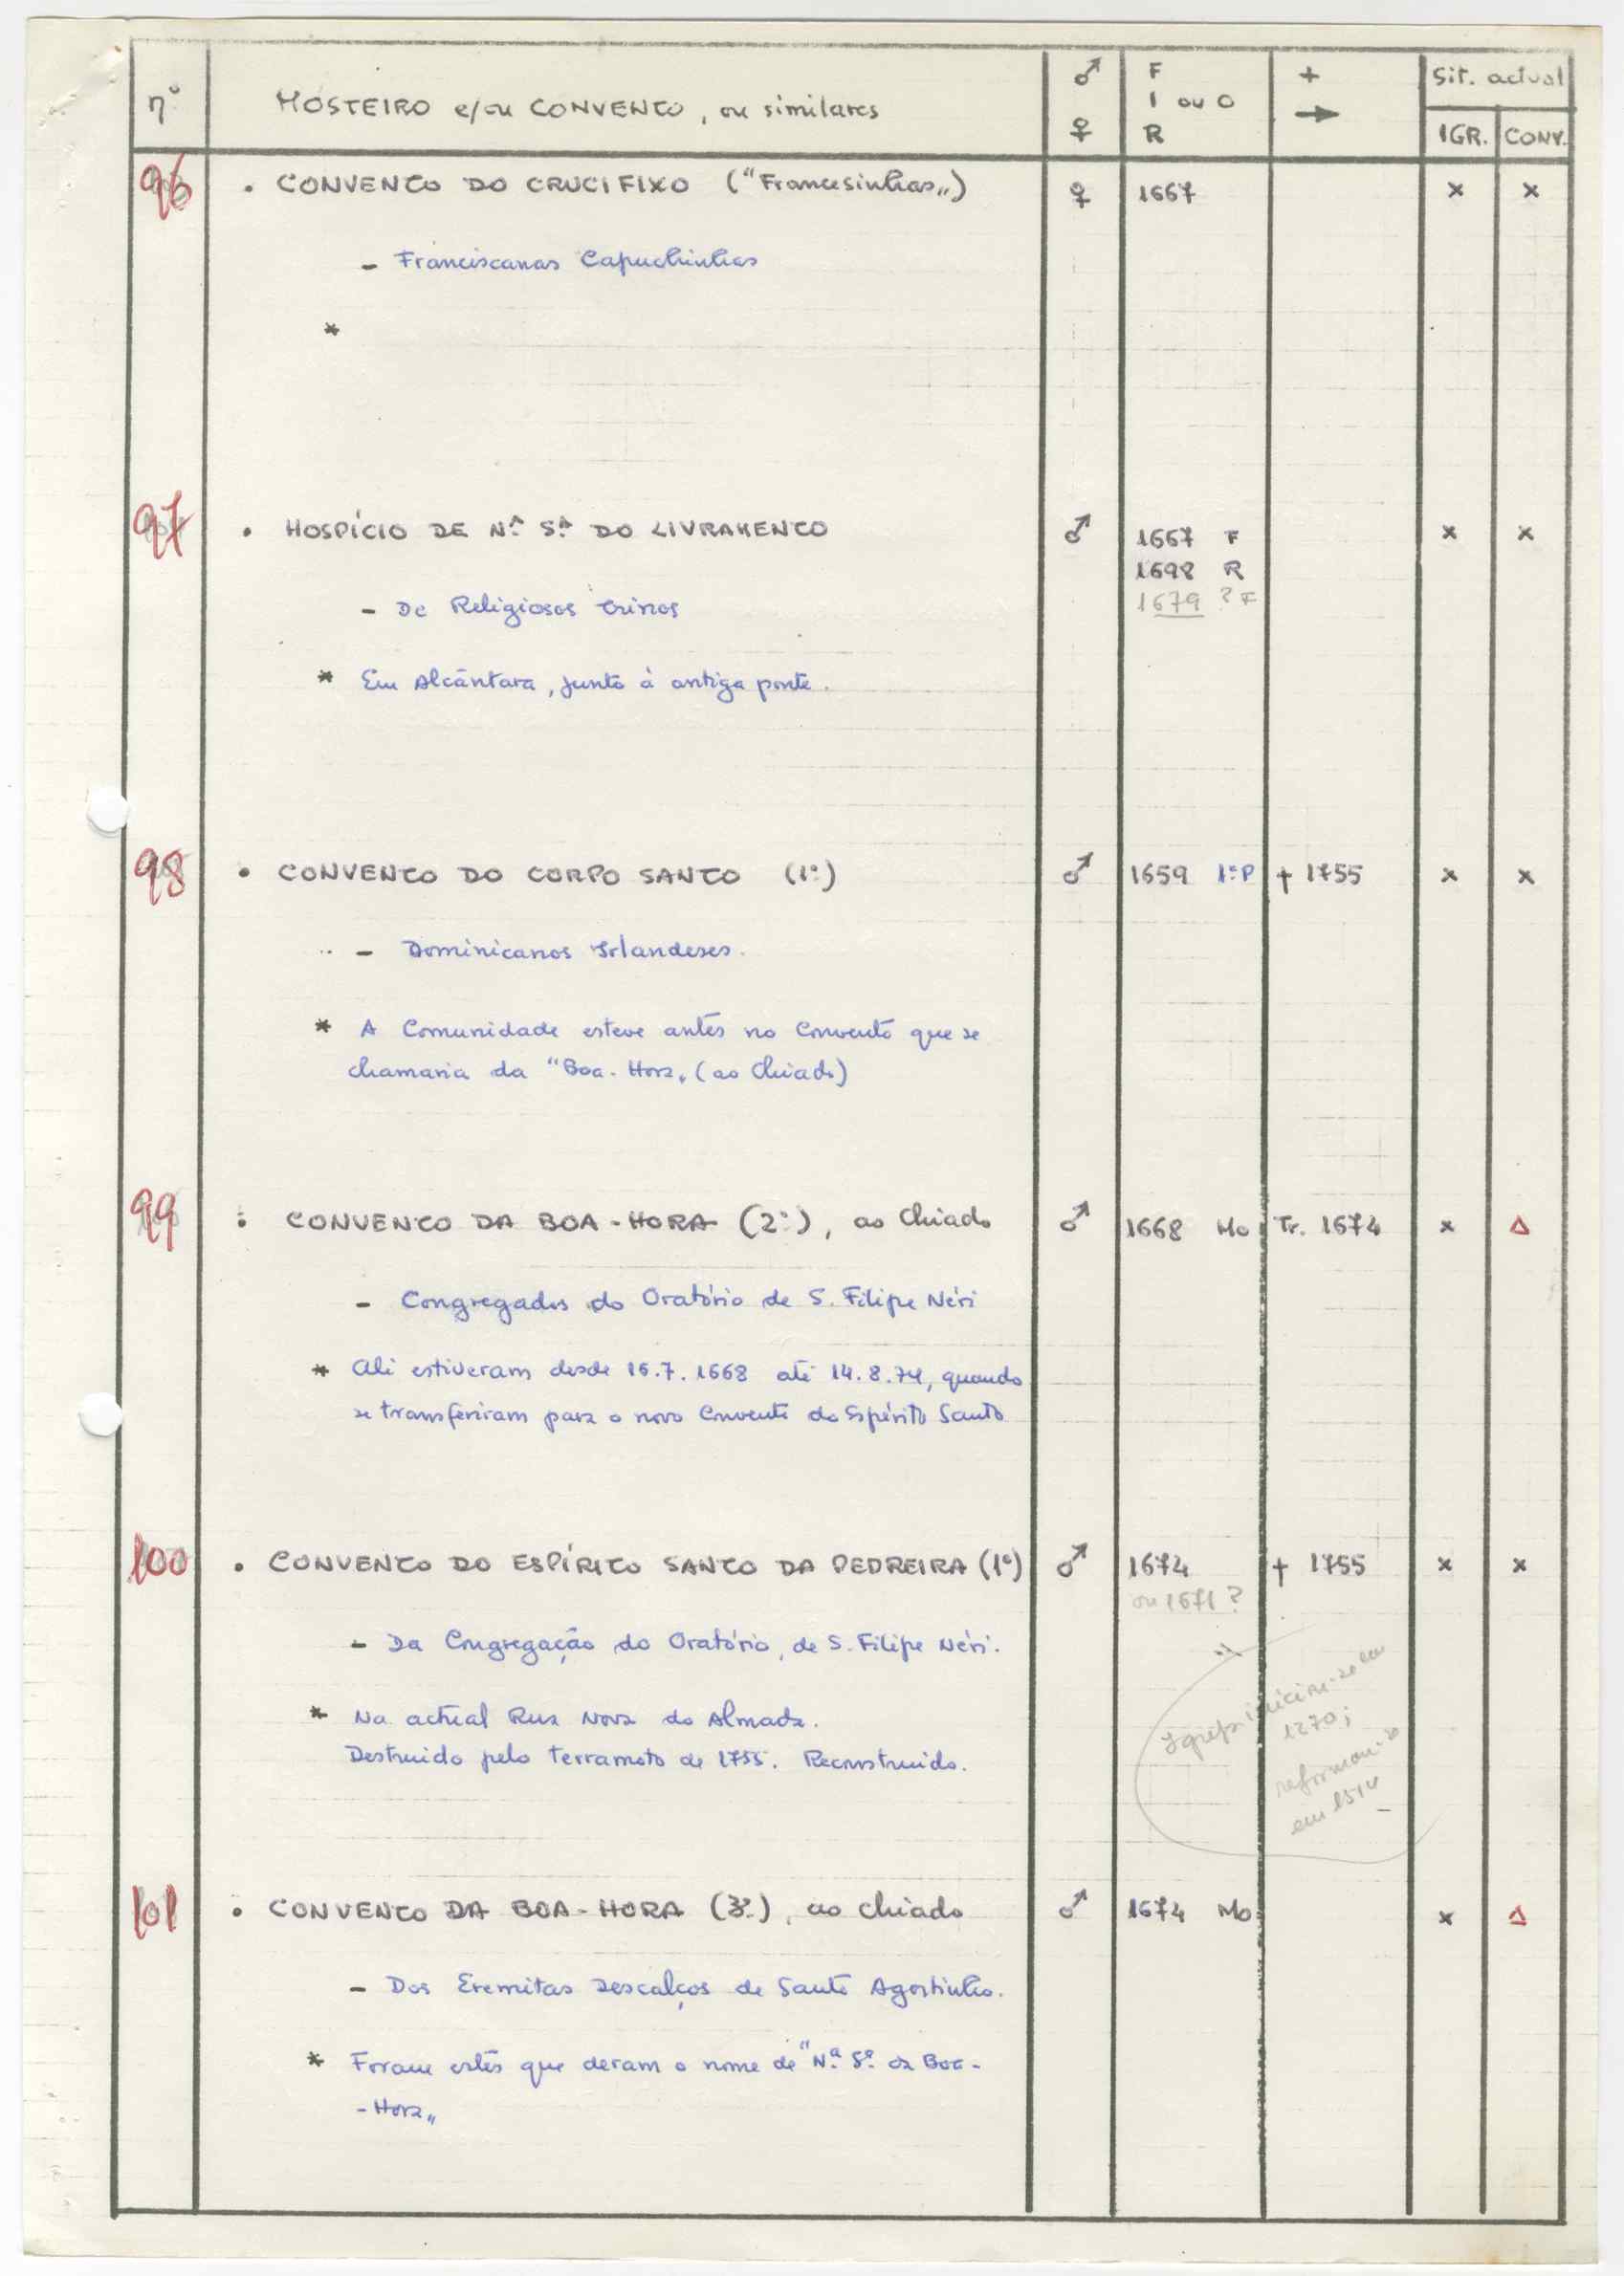 nº
MOSTEIRO e/ou CONVENTO, ou similares
♂
♀
F
I ou O
R
+
→
Sit. actual
IGR. CONV.
96 • CONVENTO DO CRUCIFIXO ("Francesinhas„) ♀ 1667 x x
- Franciscanas Capuchinhas
*
97 • HOSPÍCIO DE Nª Sª DO LIVRAMENTO ♂ 1667 F x x
1698 R
1679 ? F
- De Religiosos Trinos
* Em Alcântara, junto à antiga ponte.
98 • CONVENTO DO CORPO SANTO (1º) ♂ 1659 1ªP + 1755 x x
- Dominicanos Irlandeses.
* A Comunidade esteve antes no Convento que se
chamaria da "Boa-Hora„ (ao Chiado)
99 • CONVENTO DA BOA-HORA (2º), ao Chiado ♂ 1668 Mo Tr. 1674 x Δ
- Congregados do Oratório de S. Filipe Néri
* Ali estiveram desde 16.7.1668 até 14.8.74, quando
se transferiram para o novo Convento do Espírito Santo
100 • CONVENTO DO ESPÍRITO SANTO DA PEDREIRA (1º) ♂ 1674 + 1755 x x
ou 1671 ?
- Da Congregação do Oratório, de S. Filipe Néri.
* Na actual Rua Nova do Almada.
Destruido pelo terramoto de 1755. Reconstruido.
Igreja iniciou-se em
1270;
reformou-se
em 1514
101 • CONVENTO DA BOA-HORA (3º), ao Chiado ♂ 1674 Mo x Δ
- Dos Eremitas Descalços de Santo Agostinho.
* Foram estes que deram o nome de "Nª Sª da Boa-
-Hora„